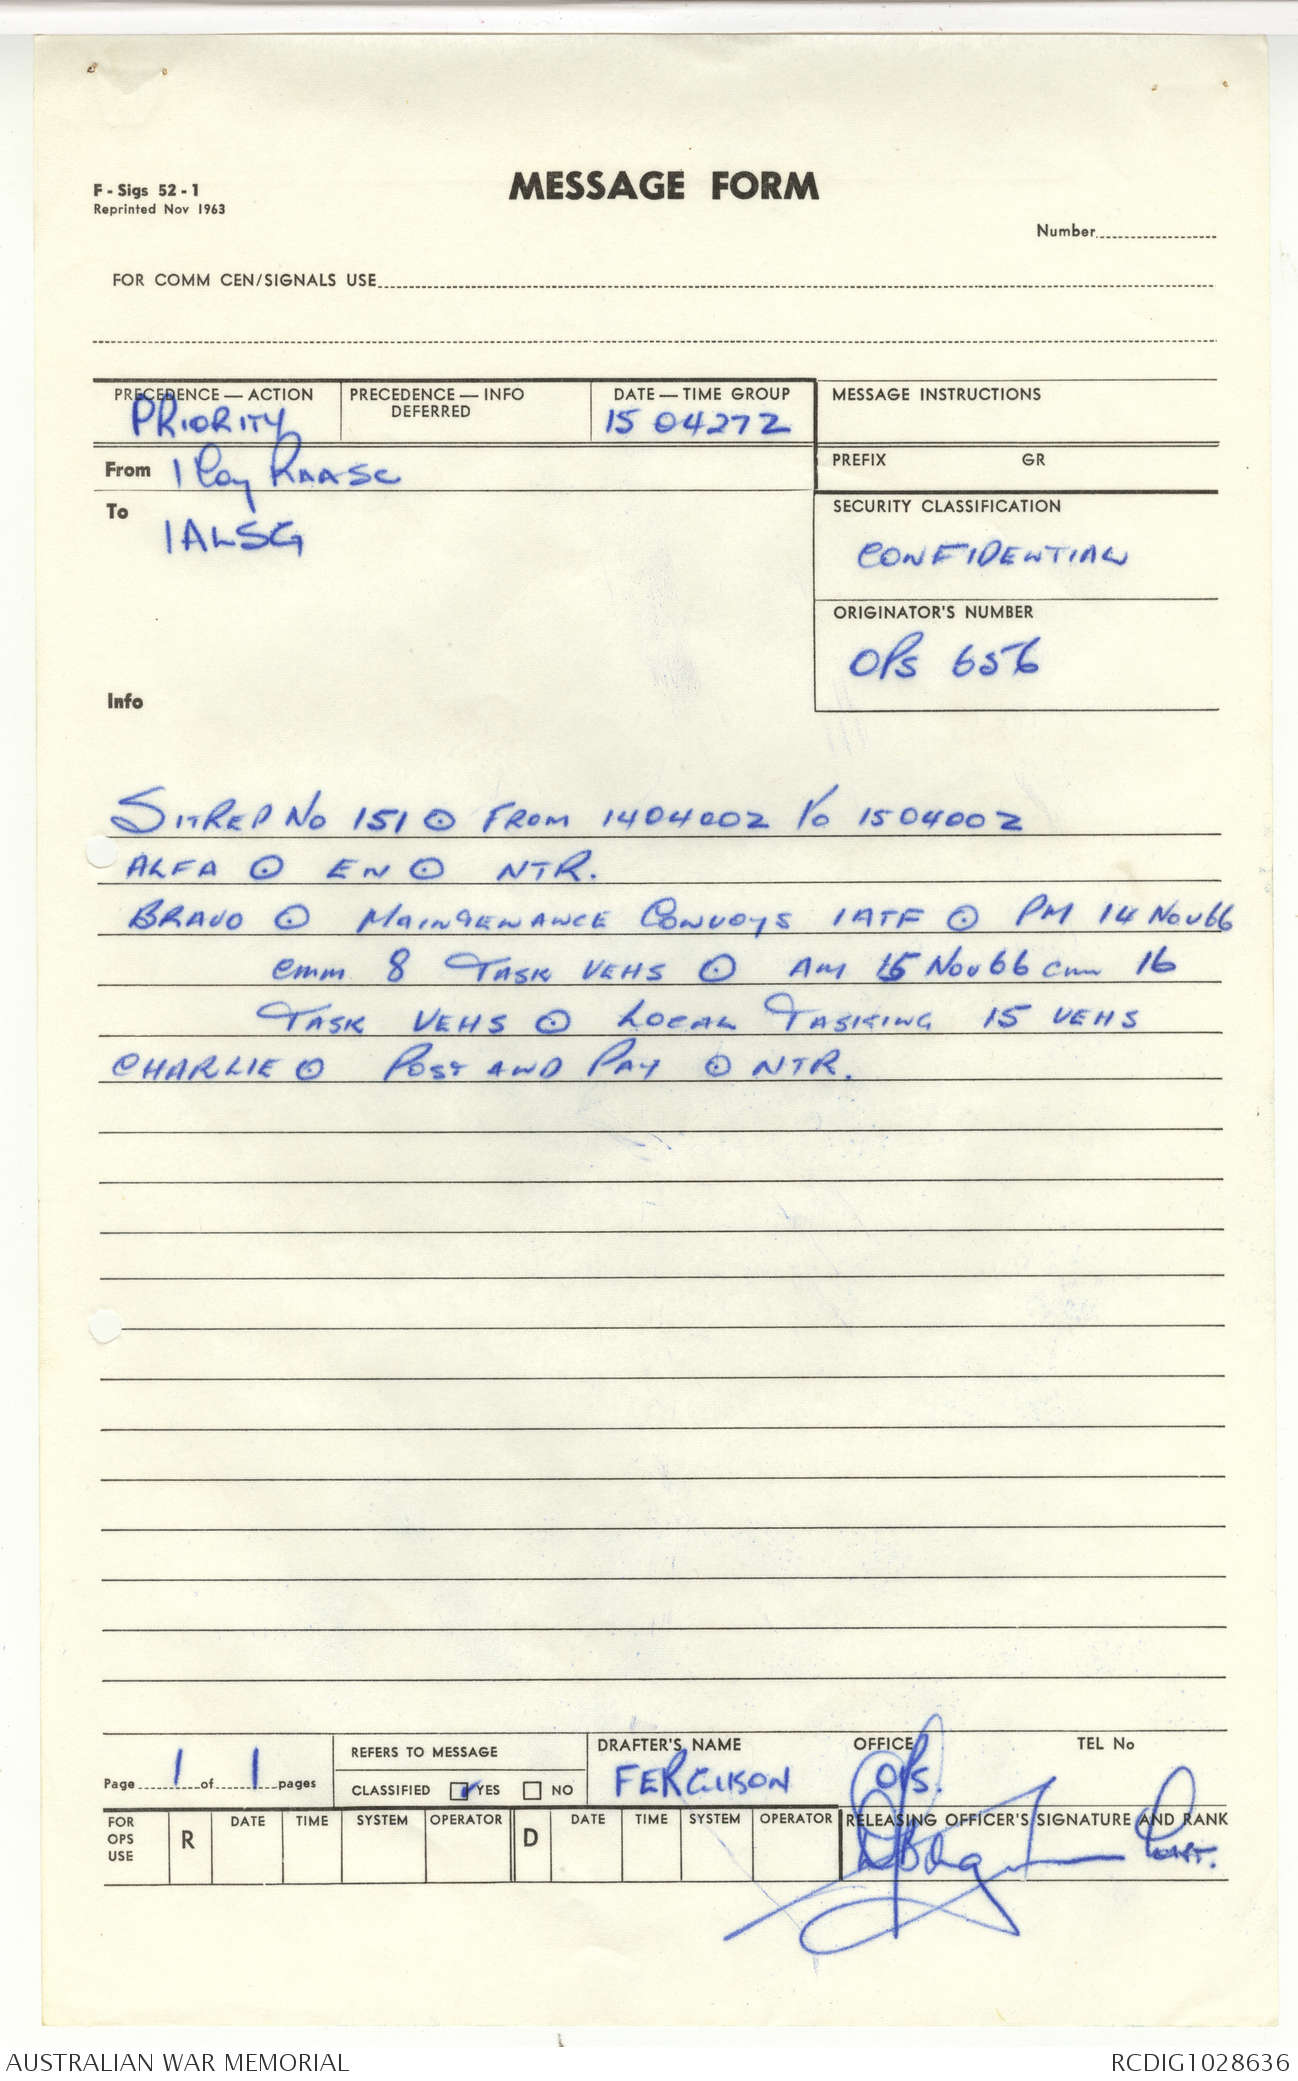 F - Sigs 52 - 1
Reprinted Nov 1963
MESSAGE FORM
Number
FOR COMM CEN/SIGNALS USE
PRECEDENCE — ACTION
PRIORITY
PRECEDENCE — INFO
DEFERRED
DATE — TIME GROUP
150427Z
MESSAGE INSTRUCTIONS
From 1 Coy RAASC
PREFIX GR
To
1ALSG
SECURITY CLASSIFICATION
CONFIDENTIAL
ORIGINATOR'S NUMBER
OPS 656
Info
SITREP NO 151 ⊙ FROM 140400Z TO 150400Z
ALFA ⊙ EN ⊙ NTR.
BRAVO ⊙ MAINTENANCE CONVOYS 1ATF ⊙ PM 14 NOV 66
cmm 8 TASK VEHS ⊙ AM 15 NOV 66 cmm 16
TASK VEHS ⊙ LOCAL TASKING 15 VEHS
CHARLIE ⊙ POST AND PAY ⊙ NTR.
Page 1 of 1 pages
REFERS TO MESSAGE
CLASSIFIED YES NO
DRAFTER'S NAME
FERGUSON
OFFICE
OPS.
TEL No
FOR
OPS
USE
R
DATE TIME SYSTEM OPERATOR
D
DATE TIME SYSTEM OPERATOR
RELEASING OFFICER'S SIGNATURE AND RANK
AUSTRALIAN WAR MEMORIAL
RCDIG1028636